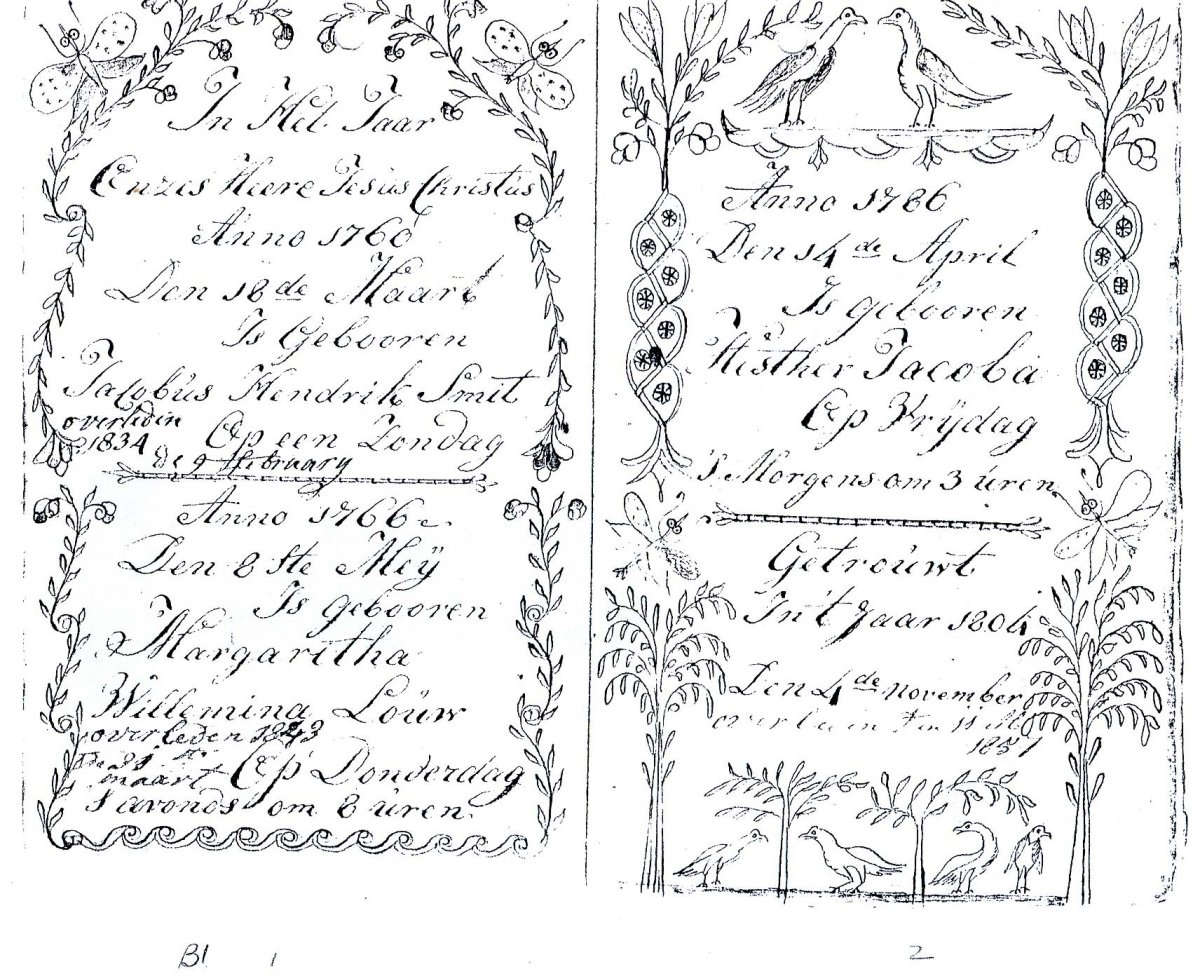 In Het Jaar
Onzes Heere Jesus Christús
Anno 1760
Den 18de Maart
Is Gebooren
Jacobús Hendrik Smit
overleden
1834 Op een Zondag
de 9 february
Anno 1766
Den 8ste Meÿ
Is gebooren
Margaritha
Willemina Loúw
overleden 1843
maart Op Donderdag
'S avonds om 8 úren
Anno 1786
Den 14de April
Is gebooren
Hesther Jacoba
Op Vrÿdag
'S Morgens om 3 úren
Getroúwt
In't Jaar 1804
Den 4de november
overleden den 11
1857
Bl 1
2